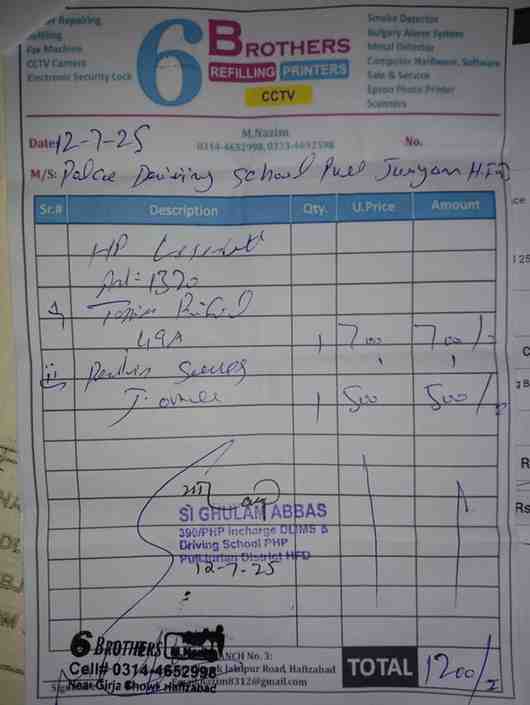 Repairing
Fax Machine
CCTV Camera
Electronic Security Lock
6 BROTHERS
REFILLING PRINTERS
CCTV
Smoke Detector
Bulgary Alarm System
Metal Detector
Computer Hardware, Software
Sale & Service
Epson Photo Printer
Scanners
Date: 12-7-25
M.Nazim
0314-4652998, 0333-4652598
No.
M/S: Police Driving School Pull Juriyan HFD
Sr.# Description Qty. U.Price Amount
HP
1320
49A 1 700 700/-
1 500 500/-
SI GHULAM ABBAS
390/PHP Incharge DLIMS &
Driving School PHP
Pull Jurian District HFD
12-7-25
6 BROTHERS
Cell# 0314-4652998
Near Girja Chowk Hafizabad
BRANCH No. 3:
Jalalpur Road, Hafizabad
8312@gmail.com
TOTAL 1200/-